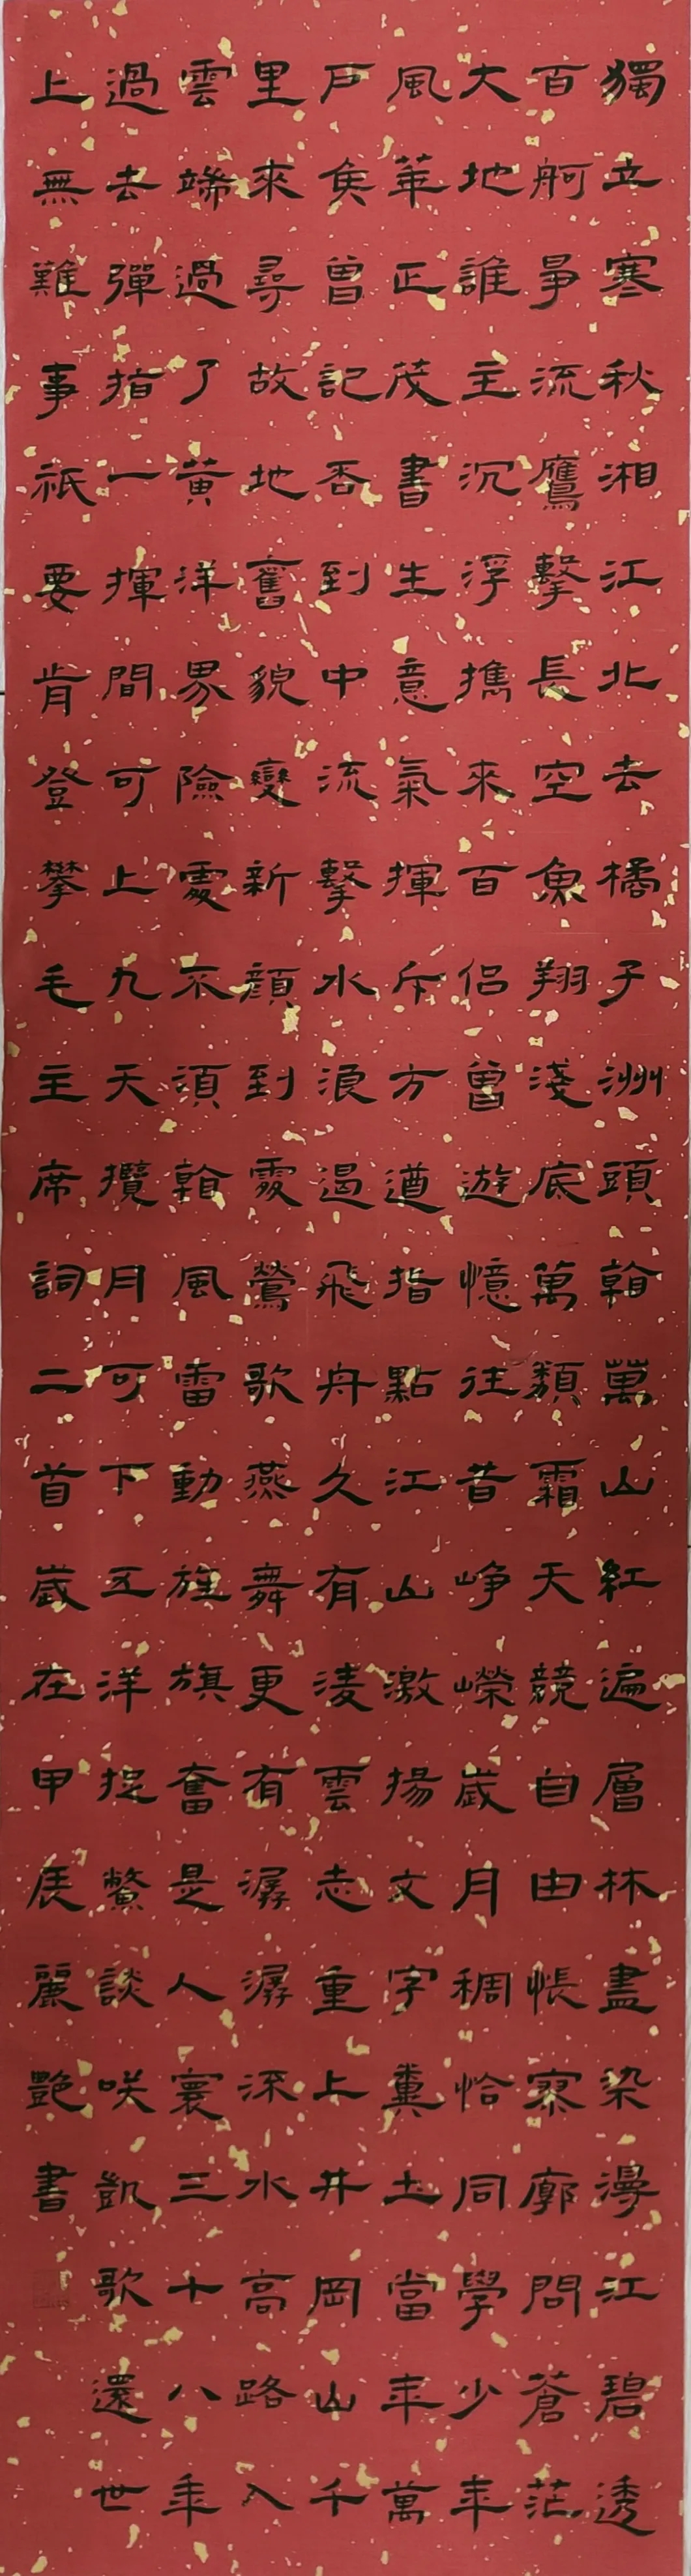 獨立寒秋湘江北去橘子洲頭看萬山紅遍層林盡染漫江碧透
百舸爭流鷹擊長空魚翔淺底萬類霜天競自由悵寥廓問蒼茫
大地誰主沉浮攜來百侶曾遊憶往昔崢嶸歲月稠恰同學少年
風華正茂書生意氣揮斥方遒指點江山激揚文字糞土當年萬
戶侯曾記否到中流擊水浪遏飛舟久有淩雲志重上井岡山千
里來尋故地舊貌變新顏到處鶯歌燕舞更有潺潺深水高路入
雲端過了黃洋界險處不須看風雷動旌旗奮是人寰三十八年
過去彈指一揮間可上九天攬月可下五洋捉鱉談咲凱歌還世
上無難事祇要肯登攀毛主席詞二首歲在甲辰麗艷書